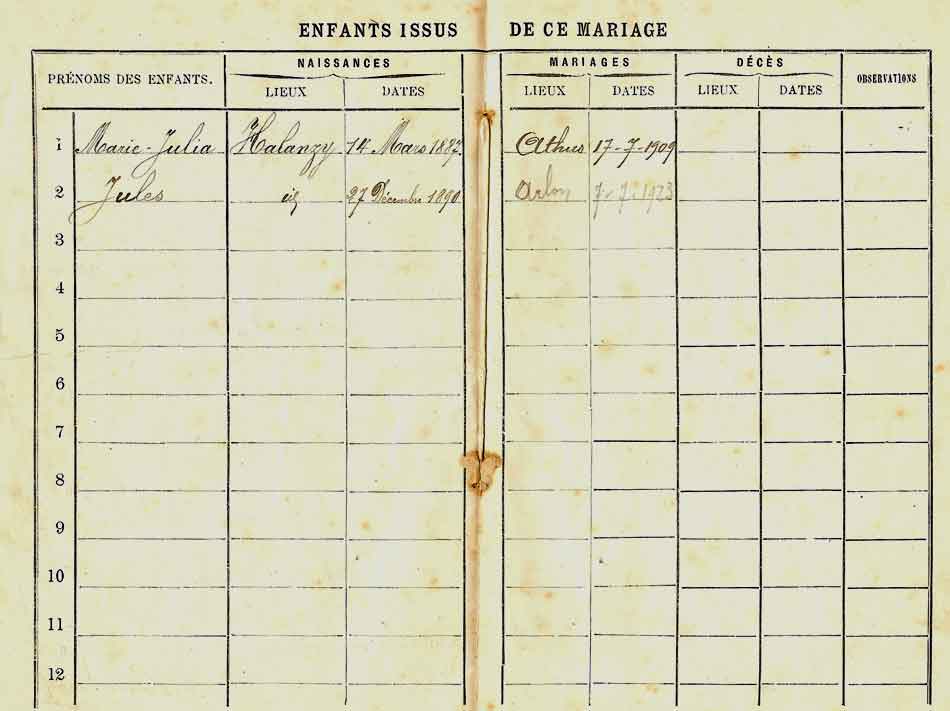 ENFANTS ISSUS DE CE MARIAGE
PRÉNOMS DES ENFANTS. NAISSANCES MARIAGES DÉCÈS OBSERVATIONS
LIEUX DATES LIEUX DATES LIEUX DATES
1 Marie-Julia Halanzy 14 Mars 1887. Athus 17-7-1909
2 Jules id 27 Décembre 1890 Arlon 7-7-1923
3
4
5
6
7
8
9
10
11
12